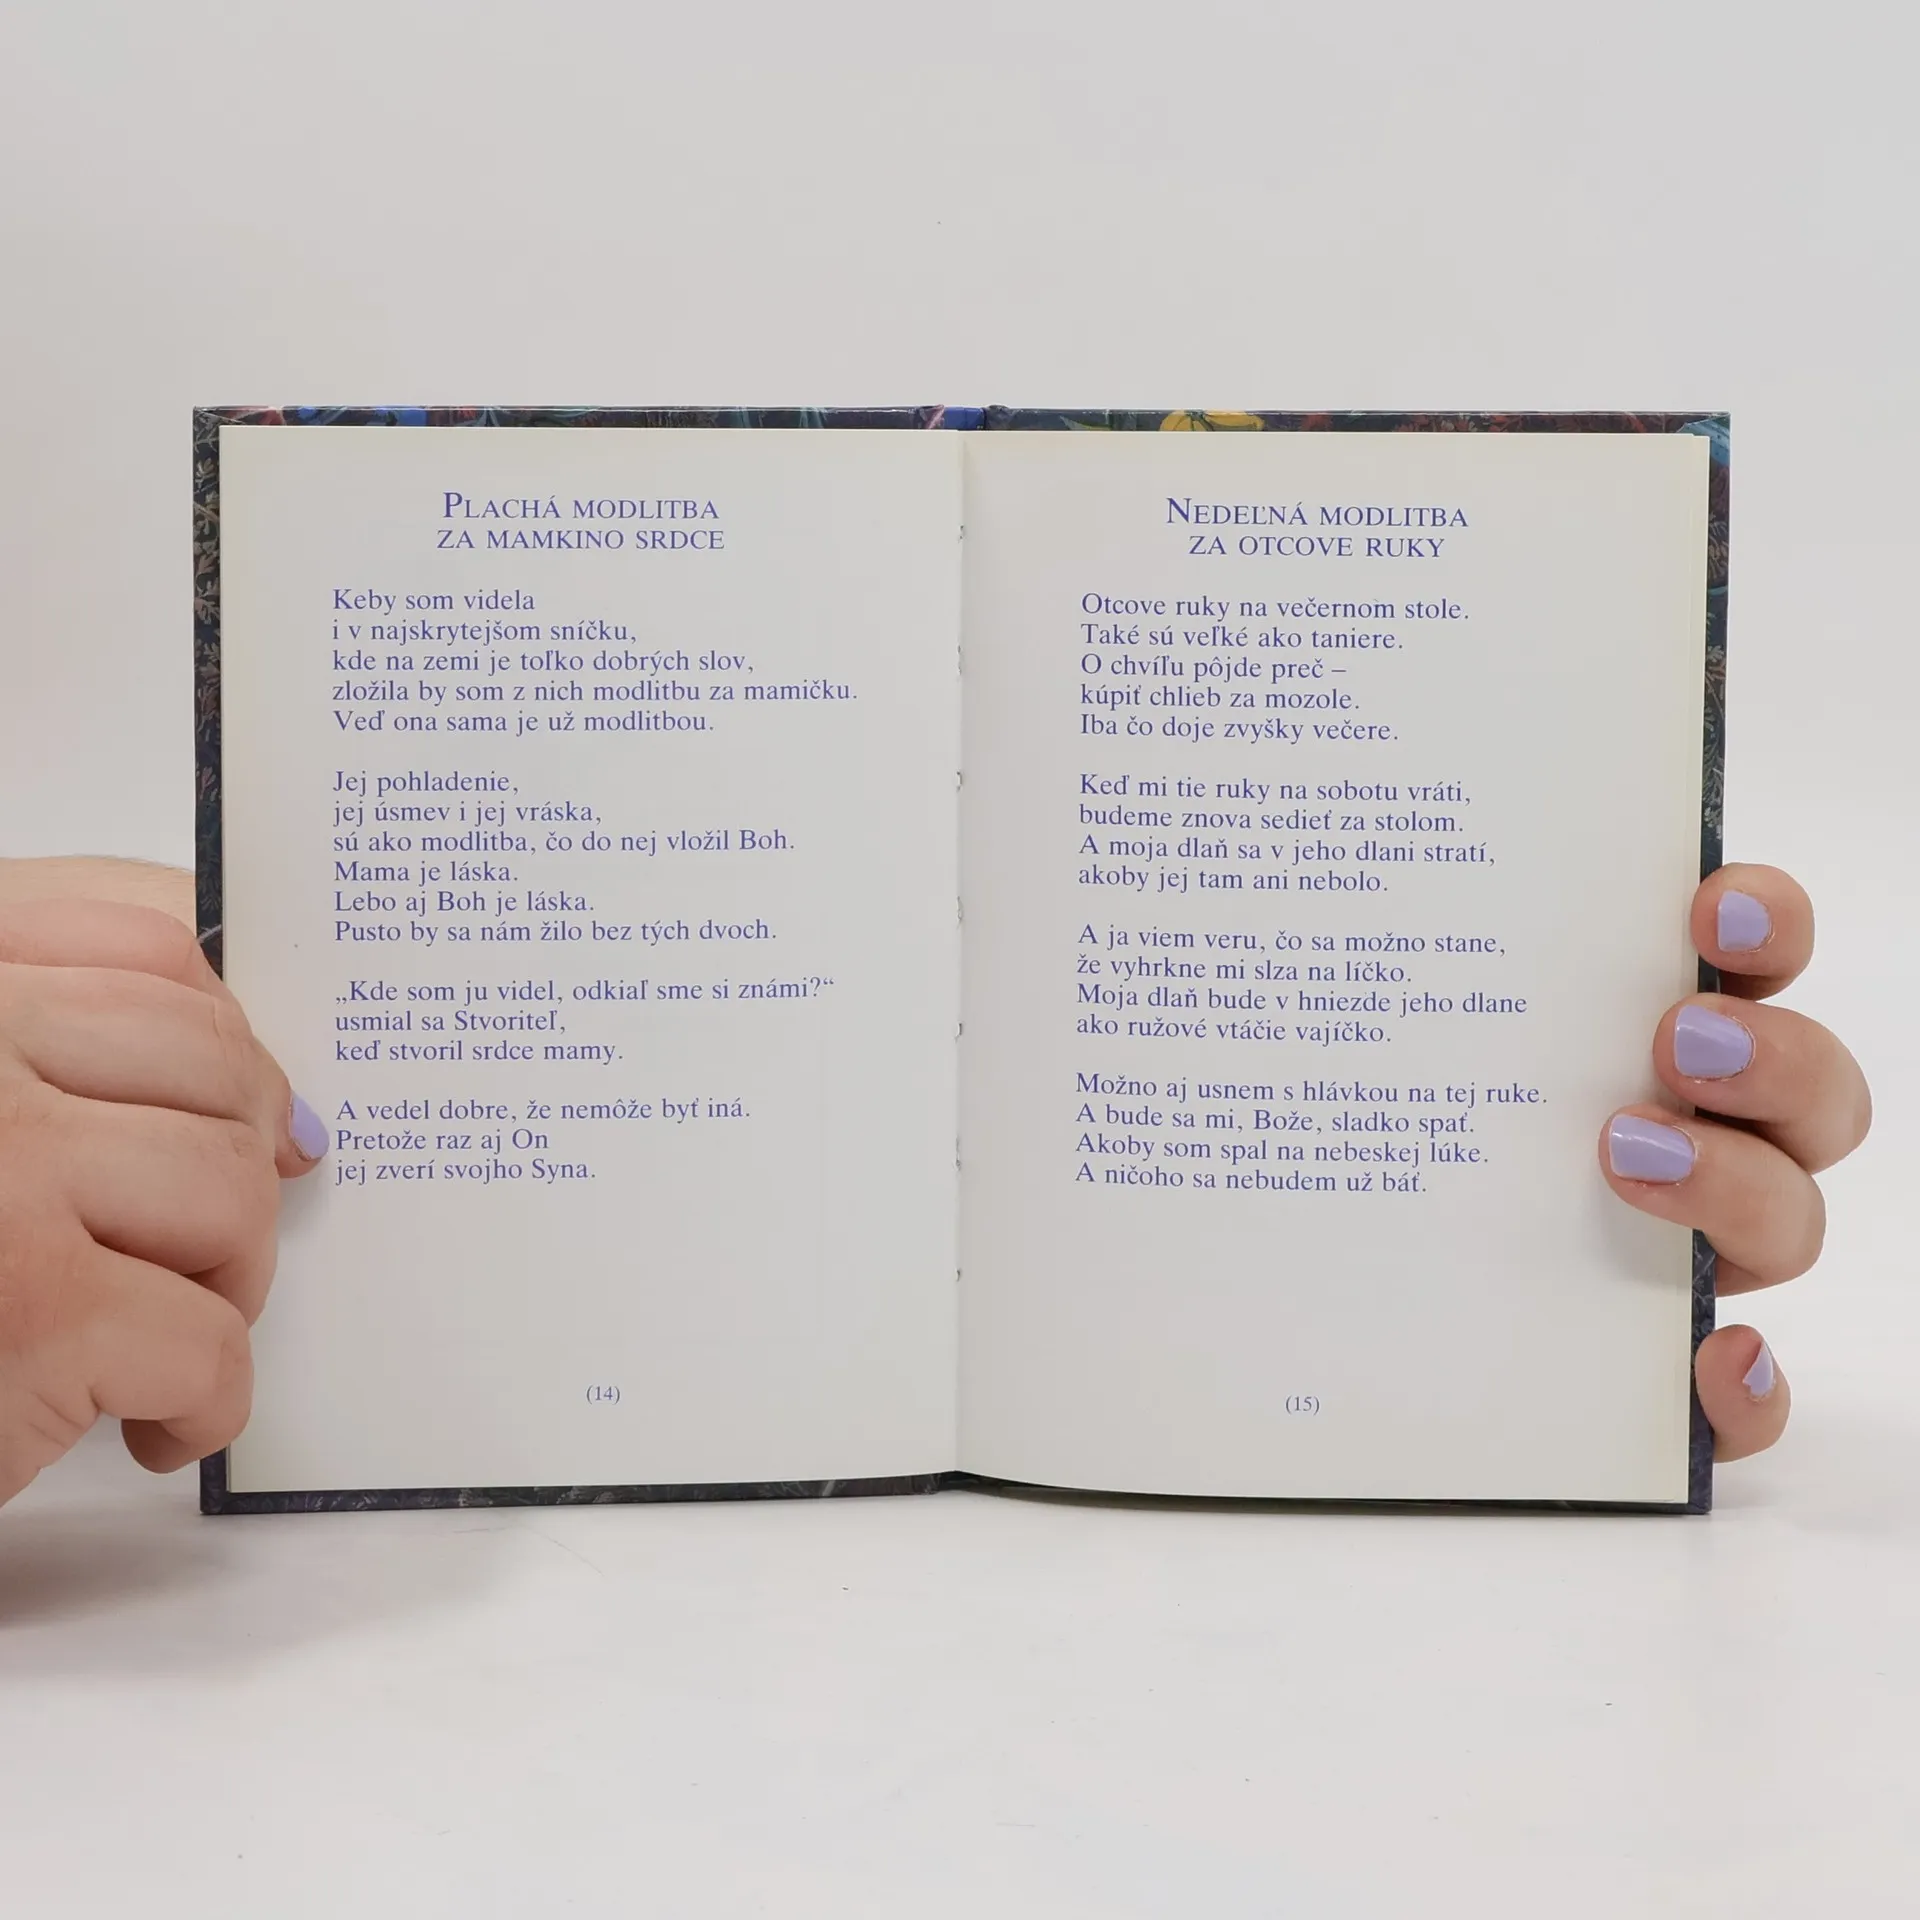 PLACHÁ MODLITBA
ZA MAMKINO SRDCE
Keby som videla
i v najskrytejšom sníčku,
kde na zemi je toľko dobrých slov,
zložila by som z nich modlitbu za mamičku.
Veď ona sama je už modlitbou.
Jej pohladenie,
jej úsmev i jej vráska,
sú ako modlitba, čo do nej vložil Boh.
Mama je láska.
Lebo aj Boh je láska.
Pusto by sa nám žilo bez tých dvoch.
„Kde som ju videl, odkiaľ sme si známi?“
usmial sa Stvoriteľ,
keď stvoril srdce mamy.
A vedel dobre, že nemôže byť iná.
Pretože raz aj On
jej zverí svojho Syna.
(14)
NEDEĽNÁ MODLITBA
ZA OTCOVE RUKY
Otcove ruky na večernom stole.
Také sú veľké ako taniere.
O chvíľu pôjde preč –
kúpiť chlieb za mozole.
Iba čo doje zvyšky večere.
Keď mi tie ruky na sobotu vráti,
budeme znova sedieť za stolom.
A moja dlaň sa v jeho dlani stratí,
akoby jej tam ani nebolo.
A ja viem veru, čo sa možno stane,
že vyhrkne mi slza na líčko.
Moja dlaň bude v hniezde jeho dlane
ako ružové vtáčie vajíčko.
Možno aj usnem s hlávkou na tej ruke.
A bude sa mi, Bože, sladko spať.
Akoby som spal na nebeskej lúke.
A ničoho sa nebudem už báť.
(15)